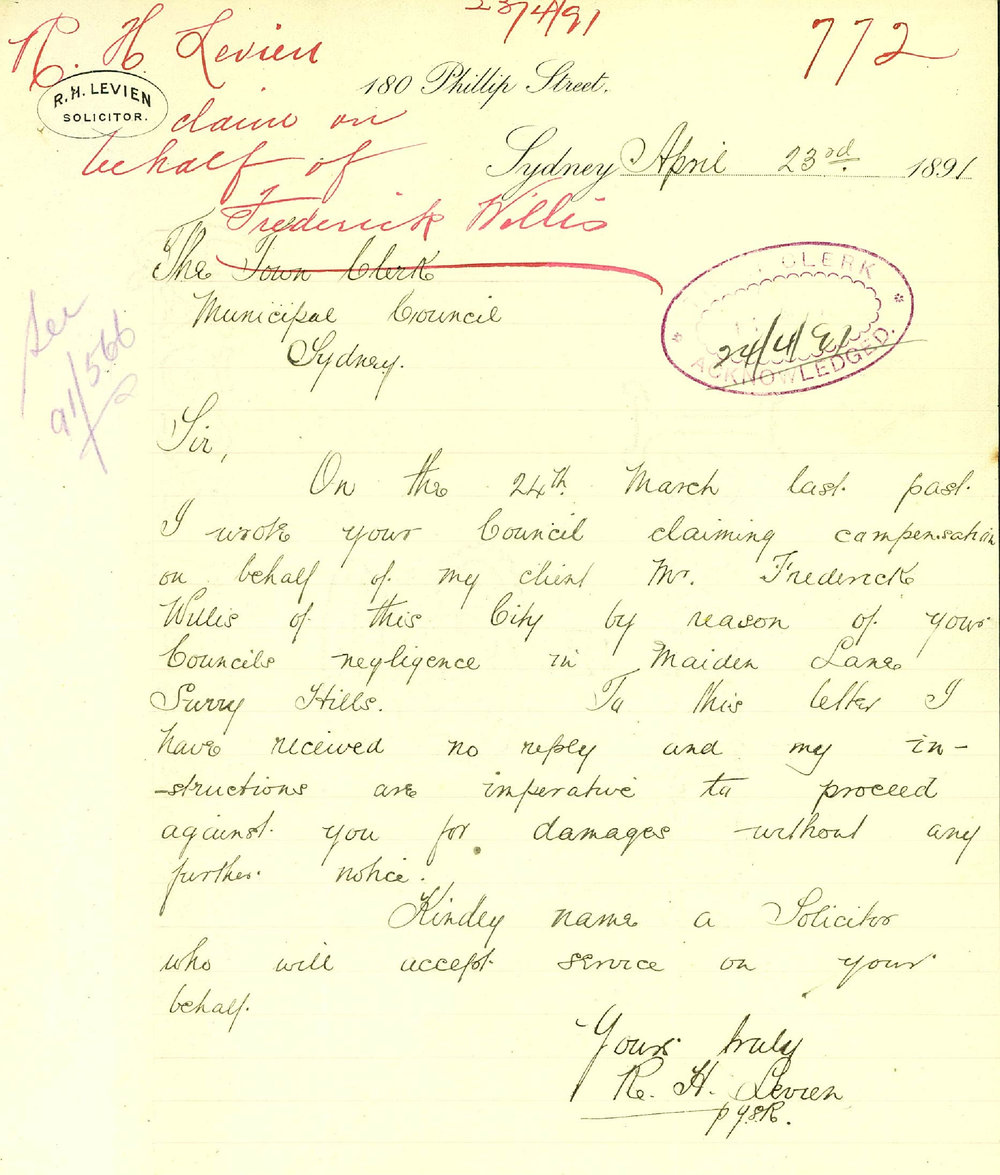 23/4/91
772
R. H Levien
R. H. LEVIEN
SOLICITOR.
180 Phillip Street.
claim on
behalf of
Frederick Willis
Sydney April 23rd 1891
The Town Clerk
Municipal Council
Sydney.
CLERK
24/4/91
ACKNOWLEDGED.
See
91/566
Sir,
On the 24th March last past
I wrote your Council claiming compensation
on behalf of my client Mr. Frederick
Willis of this City by reason of your
Councils negligence in Maiden Lane
Surry Hills. To this letter I
have received no reply and my in-
-structions are imperative to proceed
against you for damages without any
further notice.
Kindly name a Solicitor
who will accept service on your
behalf.
Yours truly
R. H. Levien